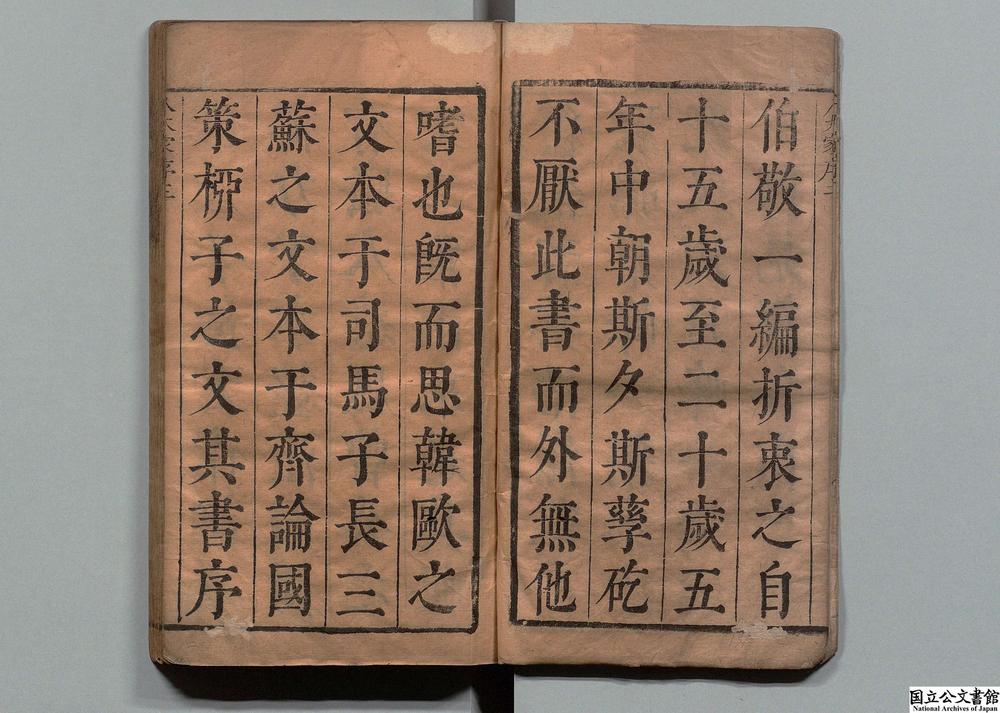 伯敬一編折衷之自
十五歲至二十歲五
年中朝斯夕斯孳矻
不厭此書而外無他
嗜也旣而思韓歐之
文本于司馬子長三
蘇之文本于齊論國
策桺子之文其書序
国立公文書館
National Archives of Japan